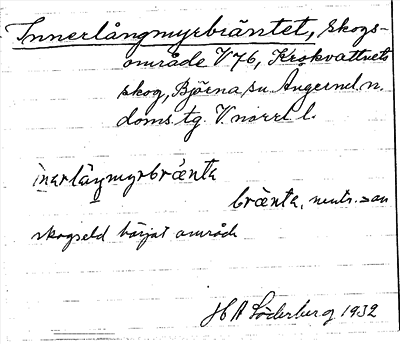 Innerlångmyrbräntet, skogs-
område V 76, Krokvattnets
skog, Björna sn. Ångerml. n.
doms. tg. V. norrl. l.
inerlåŋmyrbrǽnte
brǽnte, neutr. = av
skogseld härjat område
H A Söderberg 1932